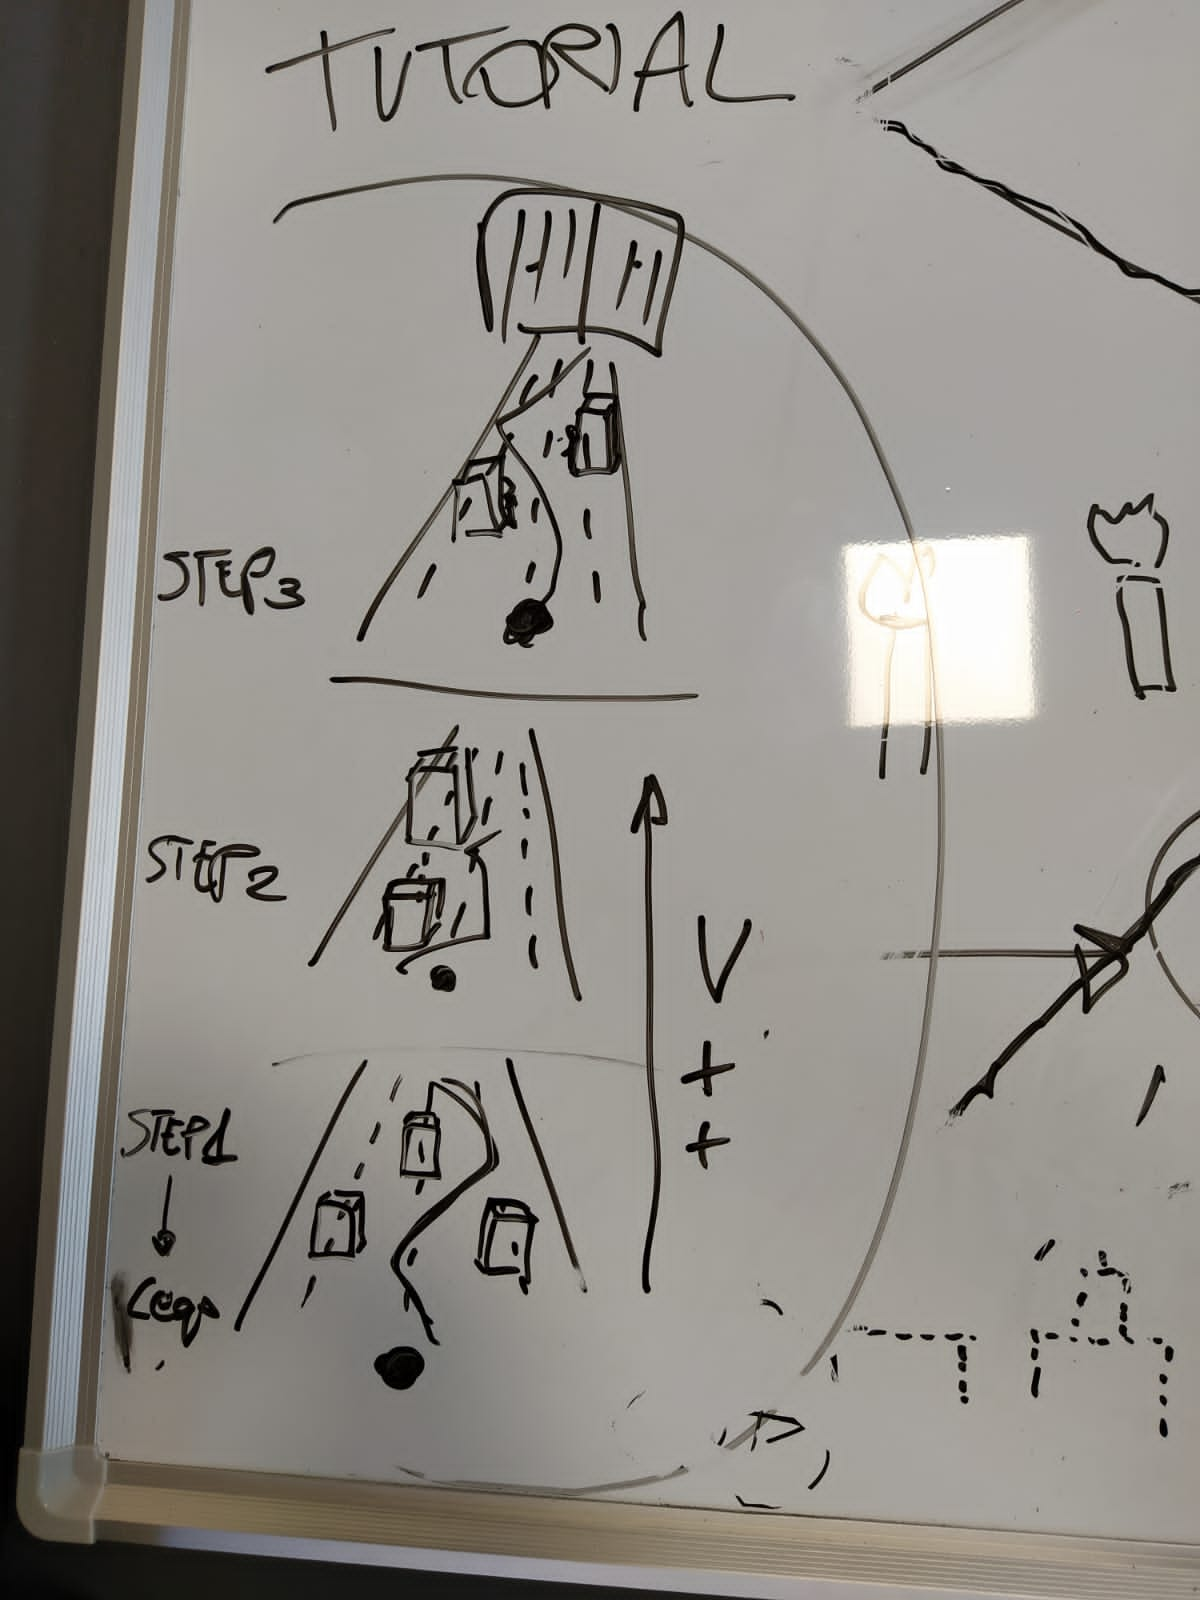 TUTORIAL
STEP3
STEP2
V
+
+
STEP1